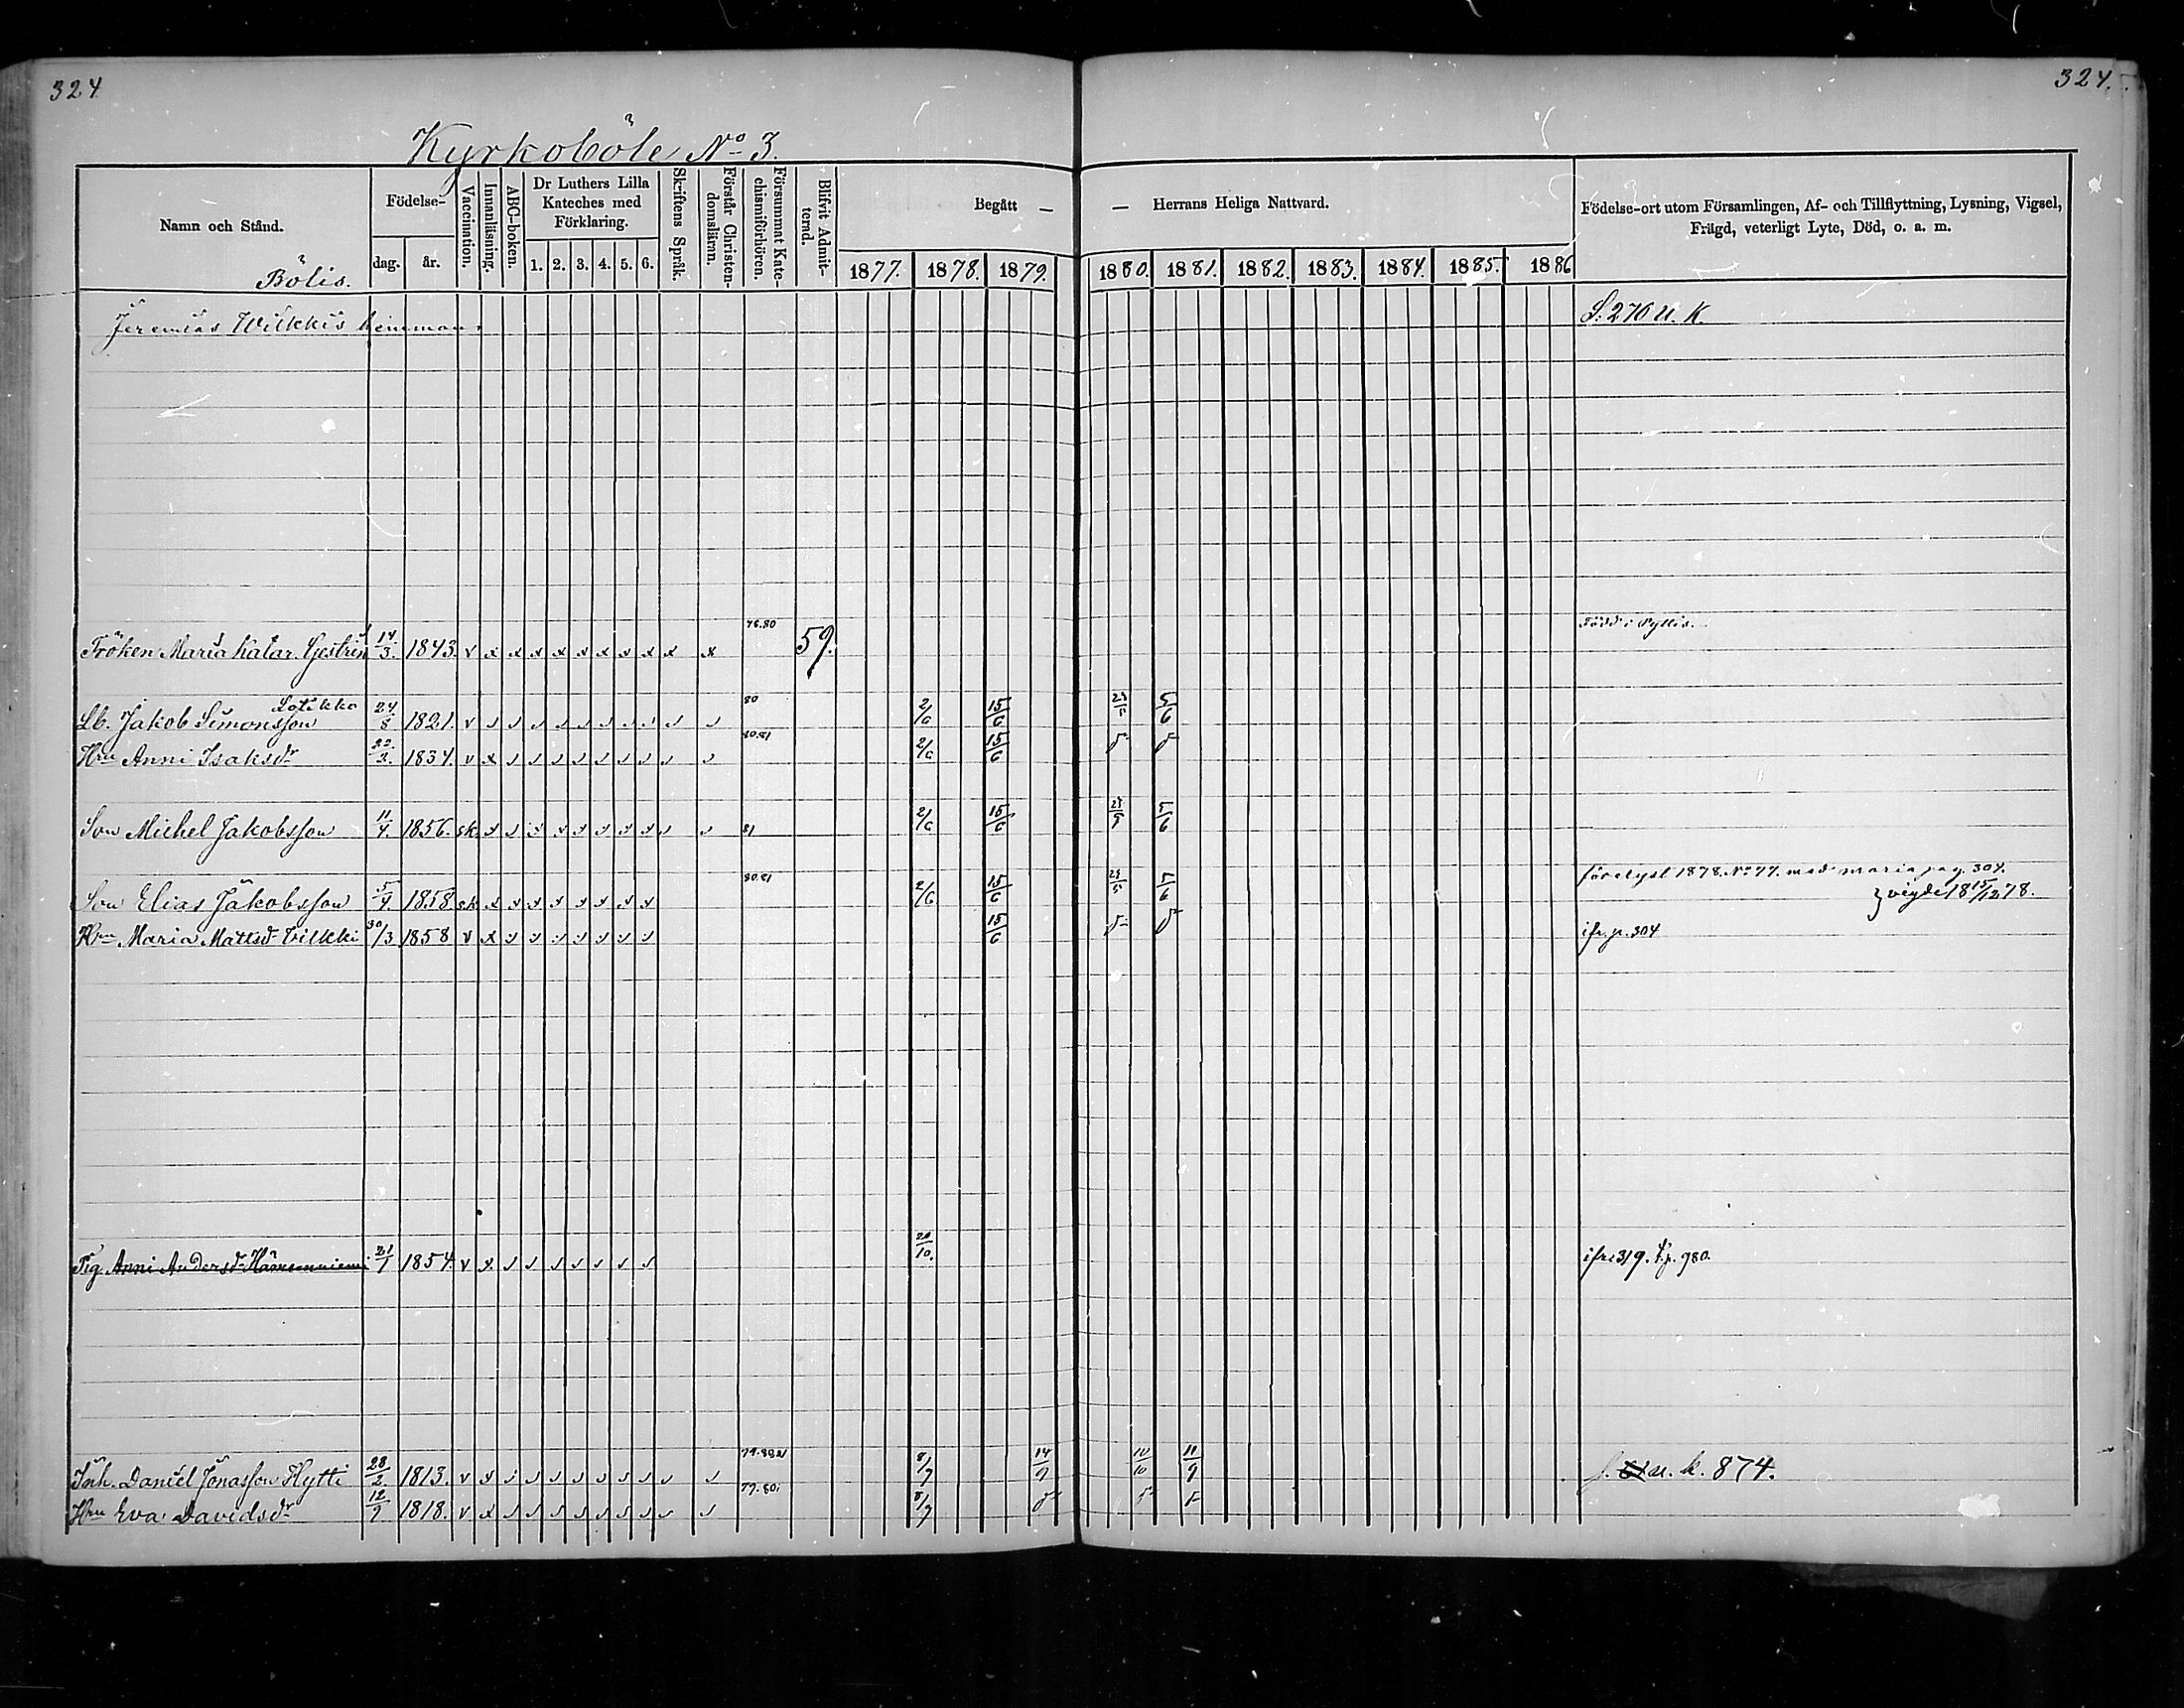 324
324.
Kyrkoböle No 3.
Namn och Stånd.
Bölis.
Födelse-
dag.
år.
Vaccination.
Innanläsning.
ABC-boken.
Dr Luthers Lilla
Kateches med
Förklaring.
1. 2. 3. 4. 5. 6.
Skriftens Språk.
Förstår Christen-
domslärann.
Försummat Kate-
chismiförhören.
Blifvit Admit-
terad.
Begått —
— Herrans Heliga Nattvard.
1877. 1878. 1879. 1880. 1881. 1882. 1883. 1884. 1885. 1886
Födelse-ort utom Församlingen, Af- och Tillflyttning, Lysning, Vigsel,
Frägd, veterligt Lyte, Död, o. a. m.
Jeremias Wilkkis hemman. S. 276 U. K.
76.80 Född i Pyttis.
Fröken Maria Katar. Gestrin 14/3. 1843. v x x x x x x x x x x 59.
Lotikko 80
Lb. Jakob Simonsson 24/5 1821. v 2/6 15/6 5/6
80.81
Hru Anni Isaksdr 1834. v x 2/6 15/6
Son Michel Jakobsson 11/4. 1856. sk. 81 2/6 15/6 5/6
80.81 förelyst 1878. No 77. med Maria pag. 304.
Son Elias Jakobsson 5/4 1858. sk. 2/6 15/6 5/6 vigde 18 15/12 78.
Hru Maria Mattsdr Vilkki 30/3 1858 v x 15/6 ifr. p. 304
Pig. Anni Andersdr Hämeenniemi 21/1 1854. v x 20/10. ifr. 319. t. p. 980.
Inh. Daniel Jonasson Hytti 28/2 1813. v 8/9 14/9 10/10 11/9 u. k. 874.
79.80.
Hru Eva Davidsdr 12/9 1818. v x 8/9